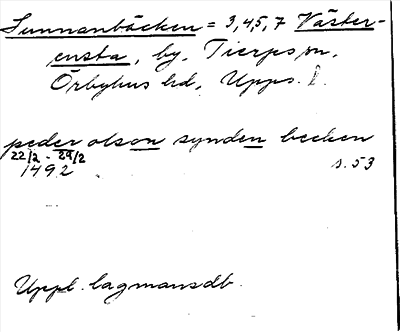 Sunnanbäcken = 3,4,5,7 Väster-
ensta, by, Tierps sn,
Örbyhus hd, Upps. l.
peder olson synden becken
22/2 - 29/2
1492 s. 53
Uppl. lagmansdb.